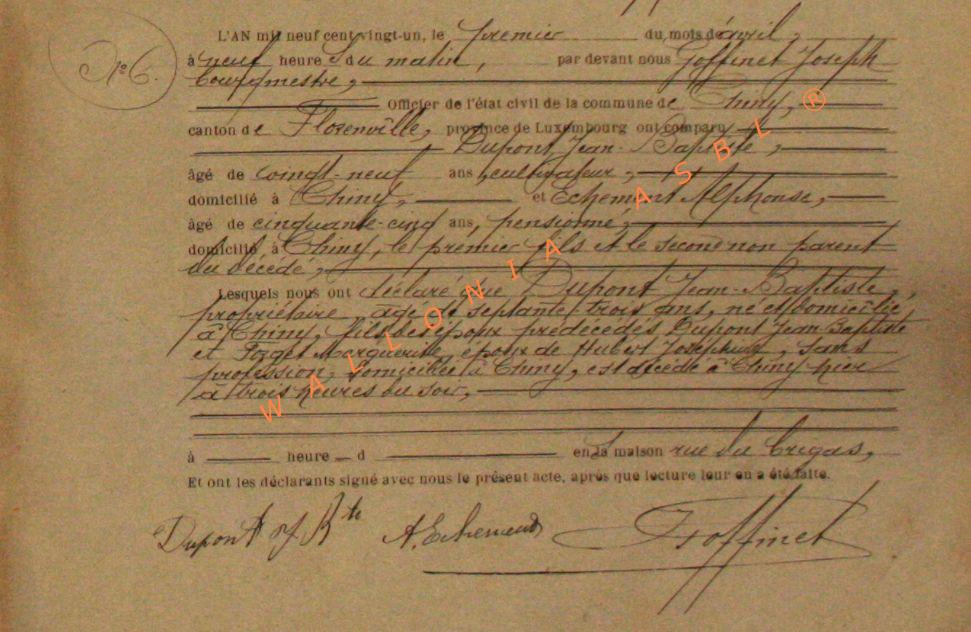 N° 6.
L'AN mil neuf cent vingt-un, le premier du mois d'avril,
à neuf heures du matin, par devant nous Goffinet Joseph
bourgmestre,
Officier de l'état civil de la commune de Chiny,
canton de Florenville, province de Luxembourg ont comparu
Dupont Jean-Baptiste,
âgé de vingt-neuf ans, cultivateur,
domicilié à Chiny, et Echement Alphonse,
âgé de cinquante-cinq ans, pensionné,
domicilié à Chiny, le premier fils et le second non parent
du décédé,
Lesquels nous ont déclaré que Dupont Jean-Baptiste,
propriétaire, âgé de septante-trois ans, né et domicilié
à Chiny, fils des époux prédécédés Dupont Jean Baptiste
et Marguerite, époux de Hubert Joséphine, sans
profession, domiciliée à Chiny, est décédé à Chiny hier
à trois heures du soir,
à heure d en la maison rue du
Et ont les déclarants signé avec nous le présent acte, après que lecture leur en a été faite.
Dupont J Bte A. Echement Goffinet
WALLONIA ASBL ®